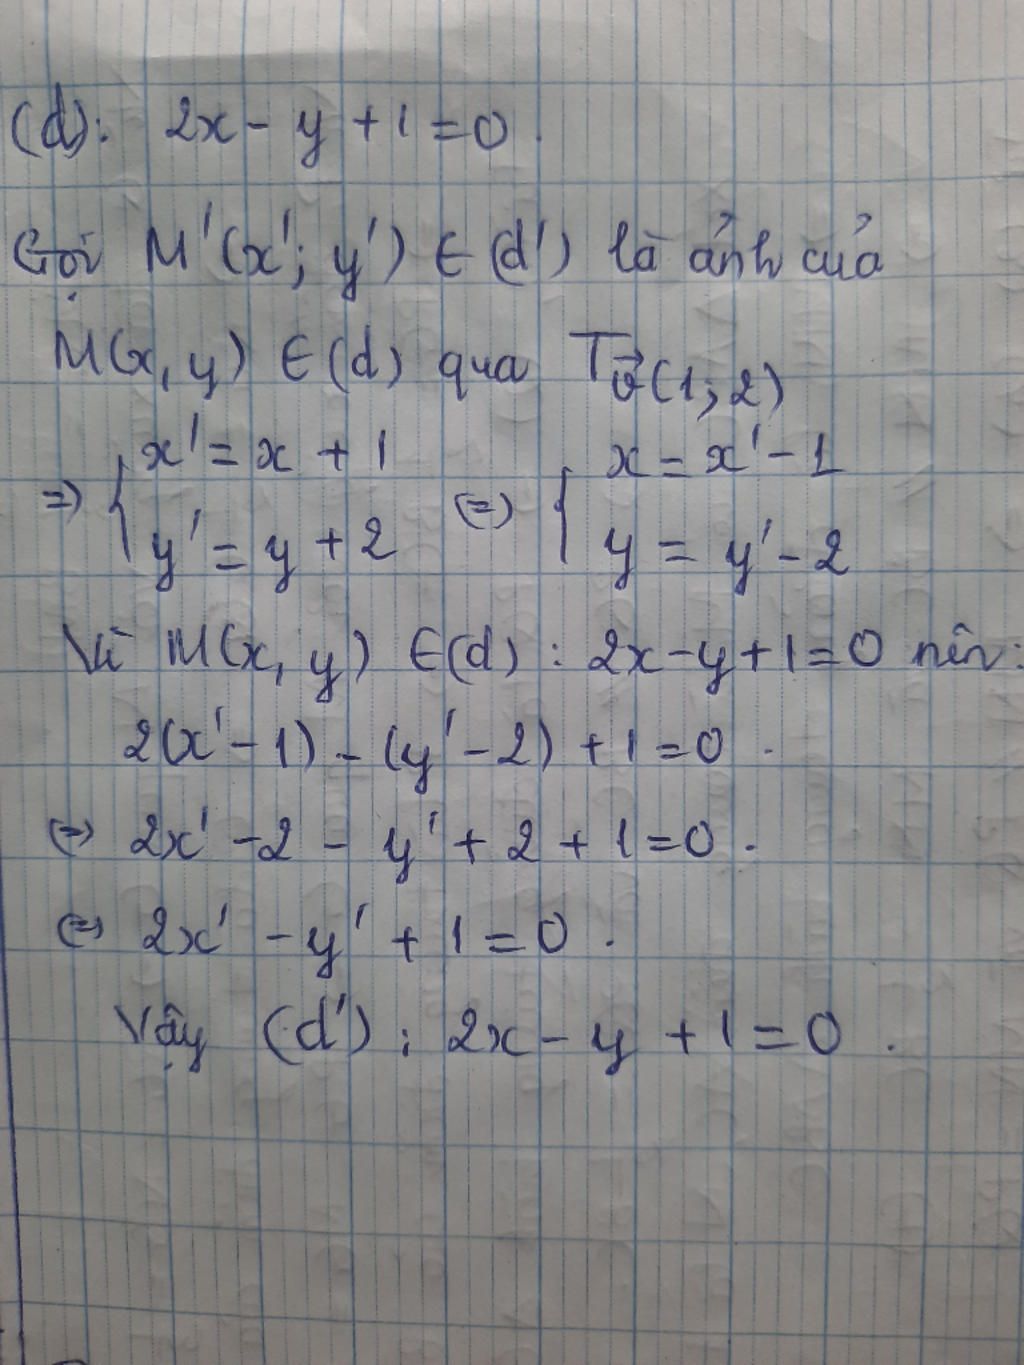 (d): 2x - y + 1 = 0.
Gọi M'(x'; y') ∈ (d') là ảnh của
M(x, y) ∈ (d) qua T_v⃗(1; 2)
=> { x' = x + 1 (=) { x = x' - 1
y' = y + 2 y = y' - 2
Vì M(x, y) ∈ (d) : 2x - y + 1 = 0 nên:
2(x' - 1) - (y' - 2) + 1 = 0.
(=) 2x' - 2 - y' + 2 + 1 = 0.
(=) 2x' - y' + 1 = 0.
Vậy (d') : 2x - y + 1 = 0.